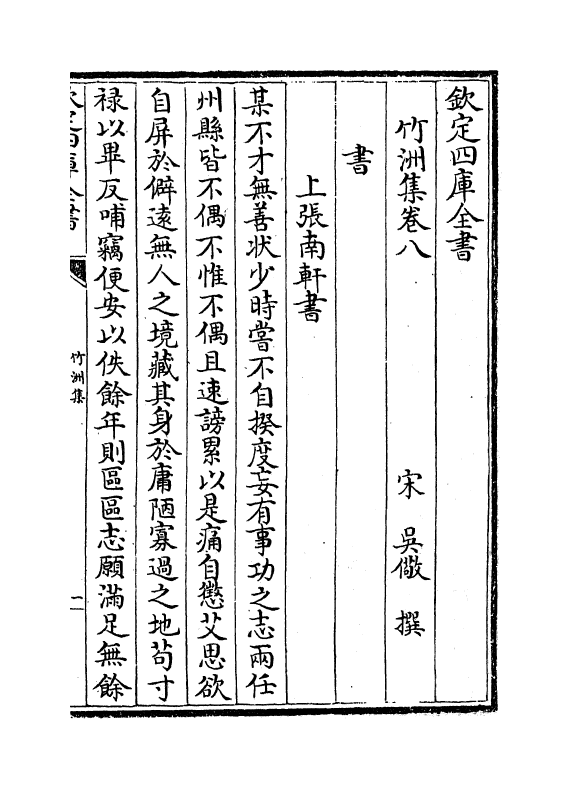 欽定四庫全書
竹洲集卷八　宋　吳儆　撰
書
上張南軒書
某不才無善狀少時嘗不自揆度妄有事功之志兩任
州縣皆不偶不惟不偶且速謗累以是痛自懲艾思欲
自屏於僻遠無人之境藏其身於庸陋寡過之地苟寸
禄以畢反哺竊便安以佚餘年則區區志願滿足無餘
欽定四庫全書
竹洲集
一